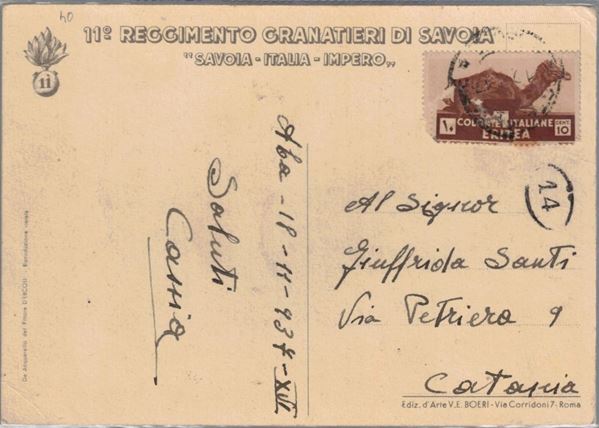 40
11º REGGIMENTO GRANATIERI DI SAVOIA
"SAVOIA - ITALIA - IMPERO„
11
COLONIE ITALIANE
10 ERITREA CENT 10
14
Aba - 18 - 11 - 937 - XVI
Saluti
Al Signor
Giuffrida Santi
Via Petriera 9
Catania
De Acquarello del Pittore D'ERCOLI - Riproduzione vietata
Ediz. d'Arte V.E. BOERI - Via Corridoni 7 - Roma